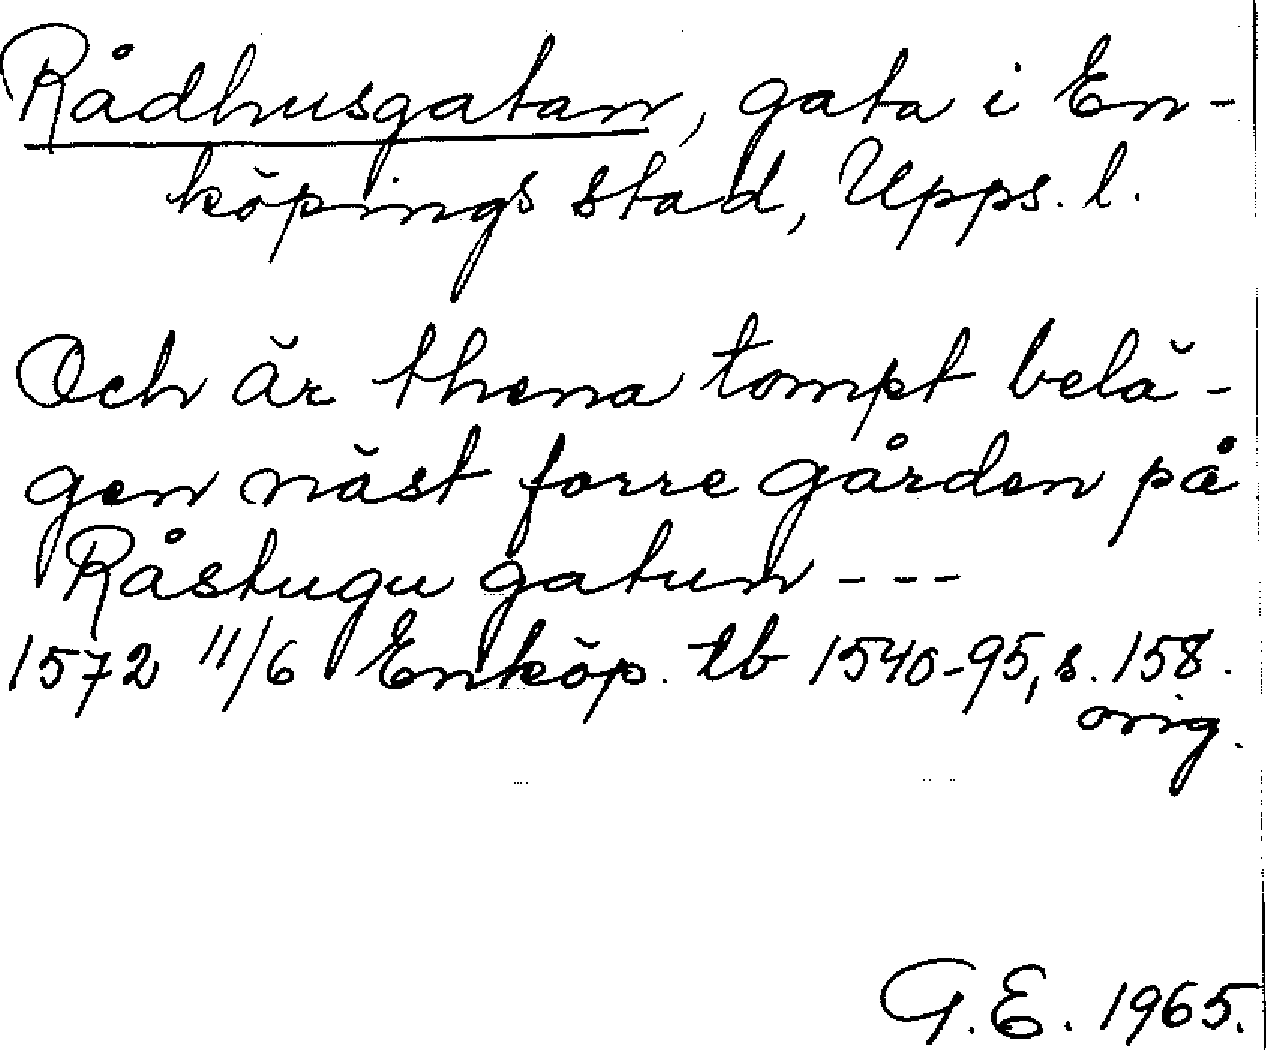 Rådhusgatan, gata i En-
köpings stad, Upps. l.
Och är thena tompt belä-
gen näst forre gården på
Råstugu gatun ---
1572 11/6 Enköp. tb 1540-95, s. 158.
orig.
G.E. 1965.